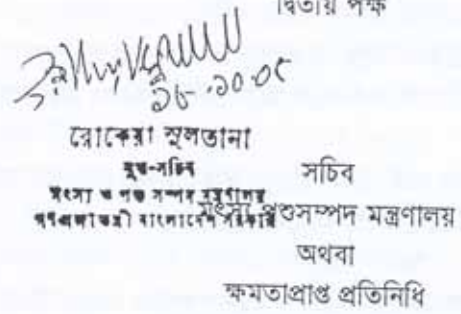 দ্বিতীয় পক্ষ
১৮-১০-০৫
রোকেয়া সুলতানা
যুগ্ম-সচিব
মৎস্য ও পশু সম্পদ মন্ত্রণালয়
গণপ্রজাতন্ত্রী বাংলাদেশ সরকার
সচিব
মৎস্য ও পশুসম্পদ মন্ত্রণালয়
অথবা
ক্ষমতাপ্রাপ্ত প্রতিনিধি